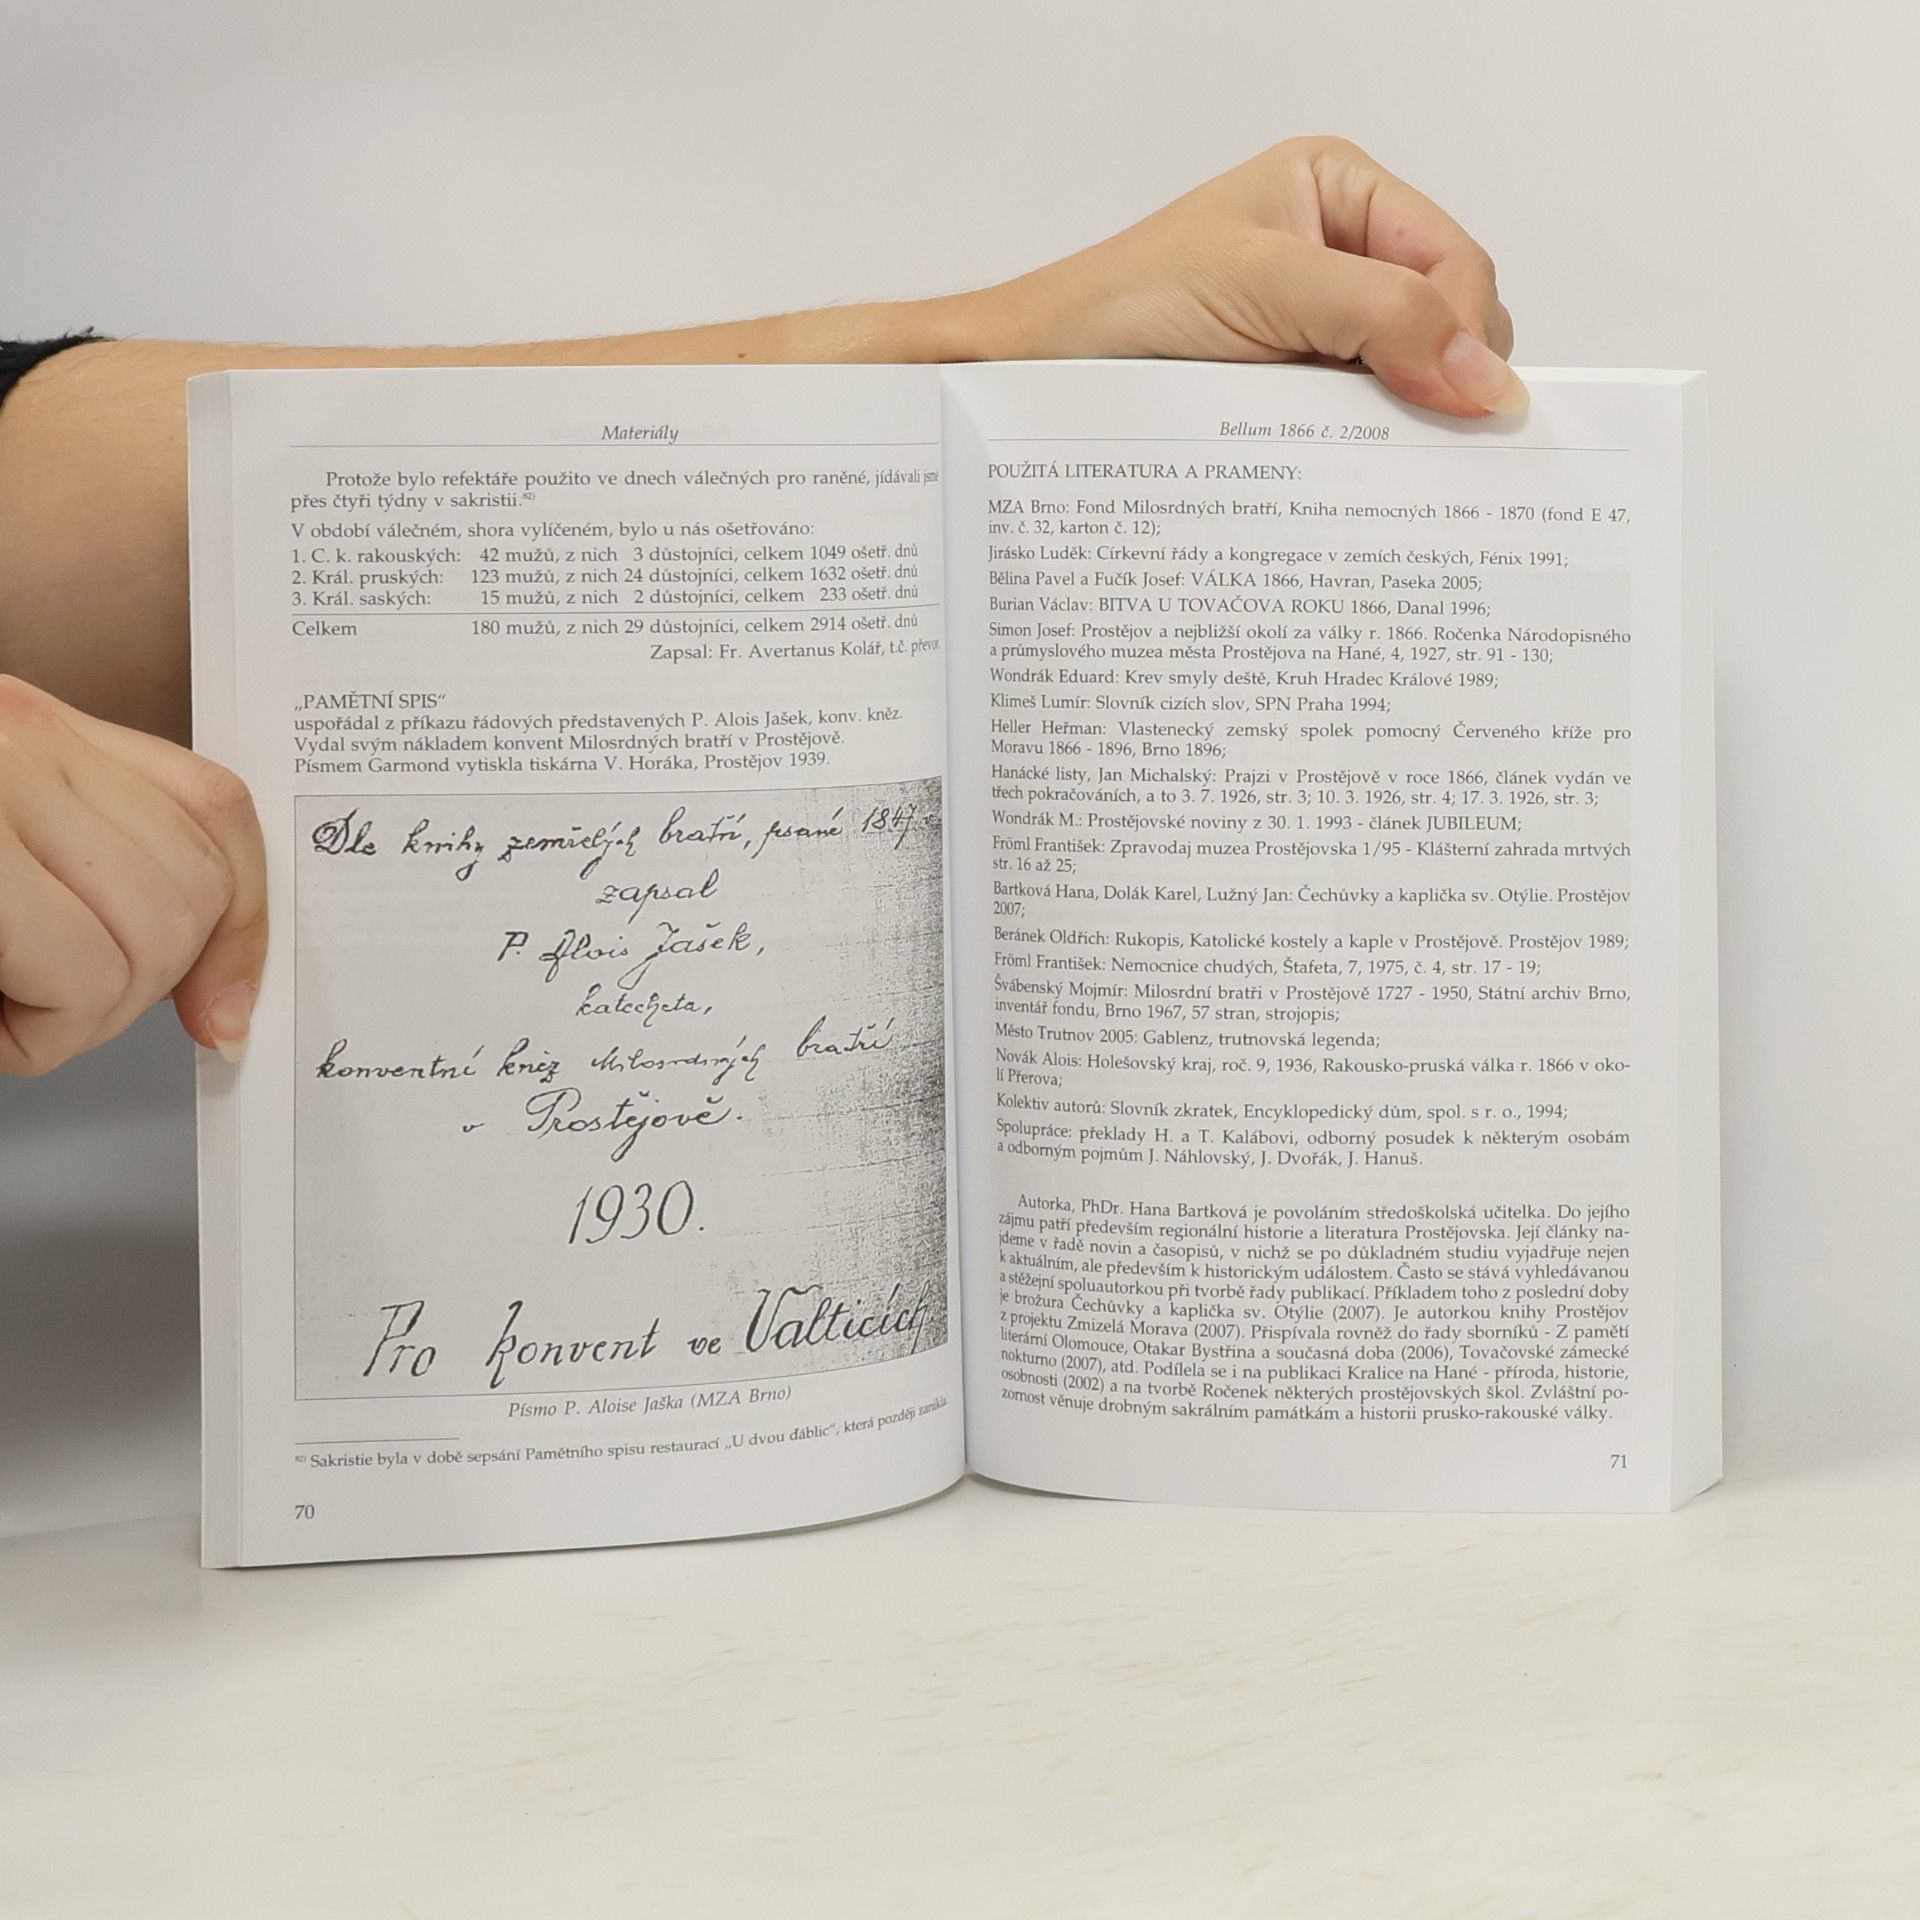 Materiály
Protože bylo refektáře použito ve dnech válečných pro raněné, jídávali jsme
přes čtyři týdny v sakristii.⁸²⁾
V období válečném, shora vylíčeném, bylo u nás ošetřováno:
1. C. k. rakouských: 42 mužů, z nich 3 důstojníci, celkem 1049 ošetř. dnů
2. Král. pruských: 123 mužů, z nich 24 důstojníci, celkem 1632 ošetř. dnů
3. Král. saských: 15 mužů, z nich 2 důstojníci, celkem 233 ošetř. dnů
Celkem 180 mužů, z nich 29 důstojníci, celkem 2914 ošetř. dnů
Zapsal: Fr. Avertanus Kolář, t.č. převor.
„PAMĚTNÍ SPIS“
uspořádal z příkazu řádových představených P. Alois Jašek, konv. kněz.
Vydal svým nákladem konvent Milosrdných bratří v Prostějově.
Písmem Garmond vytiskla tiskárna V. Horáka, Prostějov 1939.
Dle knihy zemřelých bratří, psané 1847
zapsal
P. Alois Jašek,
katecheta,
konventní kněz Milosrdných bratří
v Prostějově.
1930.
Pro konvent ve Valticích
Písmo P. Aloise Jaška (MZA Brno)
⁸²⁾ Sakristie byla v době sepsání Pamětního spisu restaurací „U dvou ďáblic“, která později zanikla
70
Bellum 1866 č. 2/2008
POUŽITÁ LITERATURA A PRAMENY:
MZA Brno: Fond Milosrdných bratří, Kniha nemocných 1866 - 1870 (fond E 47,
inv. č. 32, karton č. 12);
Jirásko Luděk: Církevní řády a kongregace v zemích českých, Fénix 1991;
Bělina Pavel a Fučík Josef: VÁLKA 1866, Havran, Paseka 2005;
Burian Václav: BITVA U TOVAČOVA ROKU 1866, Danal 1996;
Simon Josef: Prostějov a nejbližší okolí za války r. 1866. Ročenka Národopisného
a průmyslového muzea města Prostějova na Hané, 4, 1927, str. 91 - 130;
Wondrák Eduard: Krev smyly deště, Kruh Hradec Králové 1989;
Klimeš Lumír: Slovník cizích slov, SPN Praha 1994;
Heller Heřman: Vlastenecký zemský spolek pomocný Červeného kříže pro
Moravu 1866 - 1896, Brno 1896;
Hanácké listy, Jan Michalský: Prajzi v Prostějově v roce 1866, článek vydán ve
třech pokračováních, a to 3. 7. 1926, str. 3; 10. 3. 1926, str. 4; 17. 3. 1926, str. 3;
Wondrák M.: Prostějovské noviny z 30. 1. 1993 - článek JUBILEUM;
Fröml František: Zpravodaj muzea Prostějovska 1/95 - Klášterní zahrada mrtvých
str. 16 až 25;
Bartková Hana, Dolák Karel, Lužný Jan: Čechůvky a kaplička sv. Otýlie. Prostějov
2007;
Beránek Oldřich: Rukopis, Katolické kostely a kaple v Prostějově. Prostějov 1989;
Fröml František: Nemocnice chudých, Štafeta, 7, 1975, č. 4, str. 17 - 19;
Švábenský Mojmír: Milosrdní bratři v Prostějově 1727 - 1950, Státní archiv Brno,
inventář fondu, Brno 1967, 57 stran, strojopis;
Město Trutnov 2005: Gablenz, trutnovská legenda;
Novák Alois: Holešovský kraj, roč. 9, 1936, Rakousko-pruská válka r. 1866 v oko-
lí Přerova;
Kolektiv autorů: Slovník zkratek, Encyklopedický dům, spol. s r. o., 1994;
Spolupráce: překlady H. a T. Kalábovi, odborný posudek k některým osobám
a odborným pojmům J. Náhlovský, J. Dvořák, J. Hanuš.
Autorka, PhDr. Hana Bartková je povoláním středoškolská učitelka. Do jejího
zájmu patří především regionální historie a literatura Prostějovska. Její články na-
jdeme v řadě novin a časopisů, v nichž se po důkladném studiu vyjadřuje nejen
k aktuálním, ale především k historickým událostem. Často se stává vyhledávanou
a stěžejní spoluautorkou při tvorbě řady publikací. Příkladem toho z poslední doby
je brožura Čechůvky a kaplička sv. Otýlie (2007). Je autorkou knihy Prostějov
z projektu Zmizelá Morava (2007). Přispívala rovněž do řady sborníků - Z pamětí
literární Olomouce, Otakar Bystřina a současná doba (2006), Tovačovské zámecké
nokturno (2007), atd. Podílela se i na publikaci Kralice na Hané - příroda, historie,
osobnosti (2002) a na tvorbě Ročenek některých prostějovských škol. Zvláštní po-
zornost věnuje drobným sakrálním památkám a historii prusko-rakouské války.
71